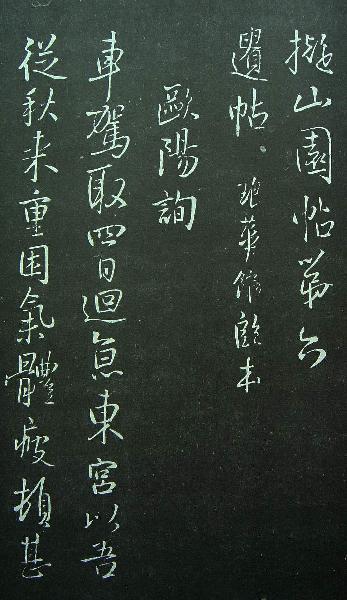 擬山園帖第六
帖 琅華館本
歐陽詢
車駕取四日迴息東宮以吾
從秋来重困氣體疲頓甚